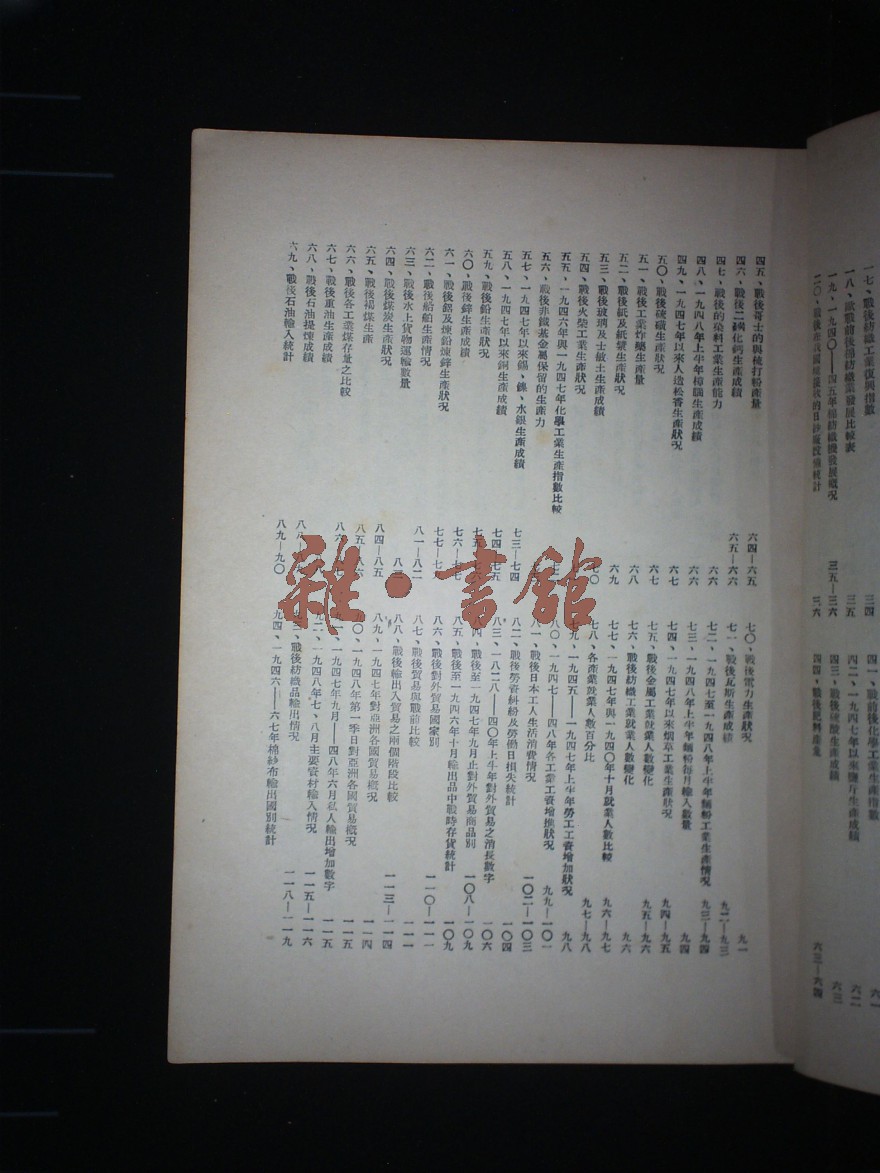 一七、戰後紡織工業復興指數
三四
一八、歐戰前後棉紡織業發展比較表
三五
一九、一九四〇——四五年棉紡織機發展概況
三五—三六
三六
四一、戰前後化學工業生產指數
六一
四二、一九四七年以來
生產成績
六二
四三、戰後硫酸生產成績
六三
四四、戰後肥料產量
六三—六四
四五、戰後哥士的與梳打粉產量
六四—六五
四六、戰後二磷化鈣生產成績
六五—六六
四七、戰後的染料工業生產能力
六六
四八、一九四八年上半年樟腦生產成績
六六
四九、一九四七年以來人造松香生產狀況
六七
五〇、戰後硫磺生產狀況
六七
五一、戰後工業炸藥生產量
六八
五二、戰後紙及紙漿生產狀況
六九
五三、戰後玻璃及士敏土生產成績
七〇
五四、戰後火柴工業生產狀況
五五、一九四六年與一九四七年化學工業生產指數比較
五六、戰後非鐵基金屬保留的生產力
五七、一九四七年以來錫、鎳、水銀生產成績
七三—七四
五八、一九四七年以來銅生產成績
七四—七五
五九、戰後鉛生產狀況
六〇、戰後鋅生產成績
七六—七七
六一、戰後鋁及煉鉛煉鋅生產狀況
七七—七
六二、戰後給舶生產情況
八一—八二
六三、戰後水上貨物運輸數量
六四、戰後煤炭生產狀況
八四—八五
六五、戰後褐煤生產
八五—八六
六六、戰後各工業煤存量之比較
六七、戰後重油生產成績
六八、戰後石油提煉成績
六九、戰後石油輸入統計
八九—九〇
七〇、戰後電力生產狀況
九一
七一、戰後瓦斯生產成績
九二—九三
七二、一九四七至一九四八年上半年麵粉工業生產情況
九三—九四
七三、一九四八年上半年麵粉每月輸入數量
九四
七四、一九四七年以來烟草工業生產狀況
九四—九五
七五、戰後金屬工業就業人數變化
九五—九六
七六、戰後紡織工業就業人數變化
九六
七七、一九四七年與一九四〇年十月就業人數比較
九六—九七
七八、各產業就業人數百分比
九七—九八
七九、一九四五——一九四七年上半年勞工工資增加狀況
九八
八〇、一九四七——四八年各工業工資增漲狀況
九九—一〇一
八一、戰後日本工人生活消費情況
一〇二—一〇三
八二、戰後勞資糾紛及勞働日損失統計
一〇四
八三、一八二八——四〇年上半年對外貿易之消長數字
一〇六
八四、戰後至一九四七年九月止對外貿易商品別
一〇八—一〇九
八五、戰後至一九四六年十月輸出品中戰時存貨統計
一〇九
八六、戰後對外貿易國家別
一一〇—一一一
八七、戰後貿易與戰前比較
一一一
八八、戰後輸出入貿易之兩個階段比較
一一三—一一四
八九、一九四七年對亞洲各國貿易概況
一一四
九〇、一九四八年第一季日對亞洲各國貿易概況
一一五
九一、一九四七年九月——四八年六月私人輸出增加數字
一一五
九二、一九四八年七、八月主要資材輸入情況
一一五—一一六
九三、戰後紡織品輸出情況
九四、一九四六——六七年棉紗布輸出國別統計
一一八—一一九
雜·書館